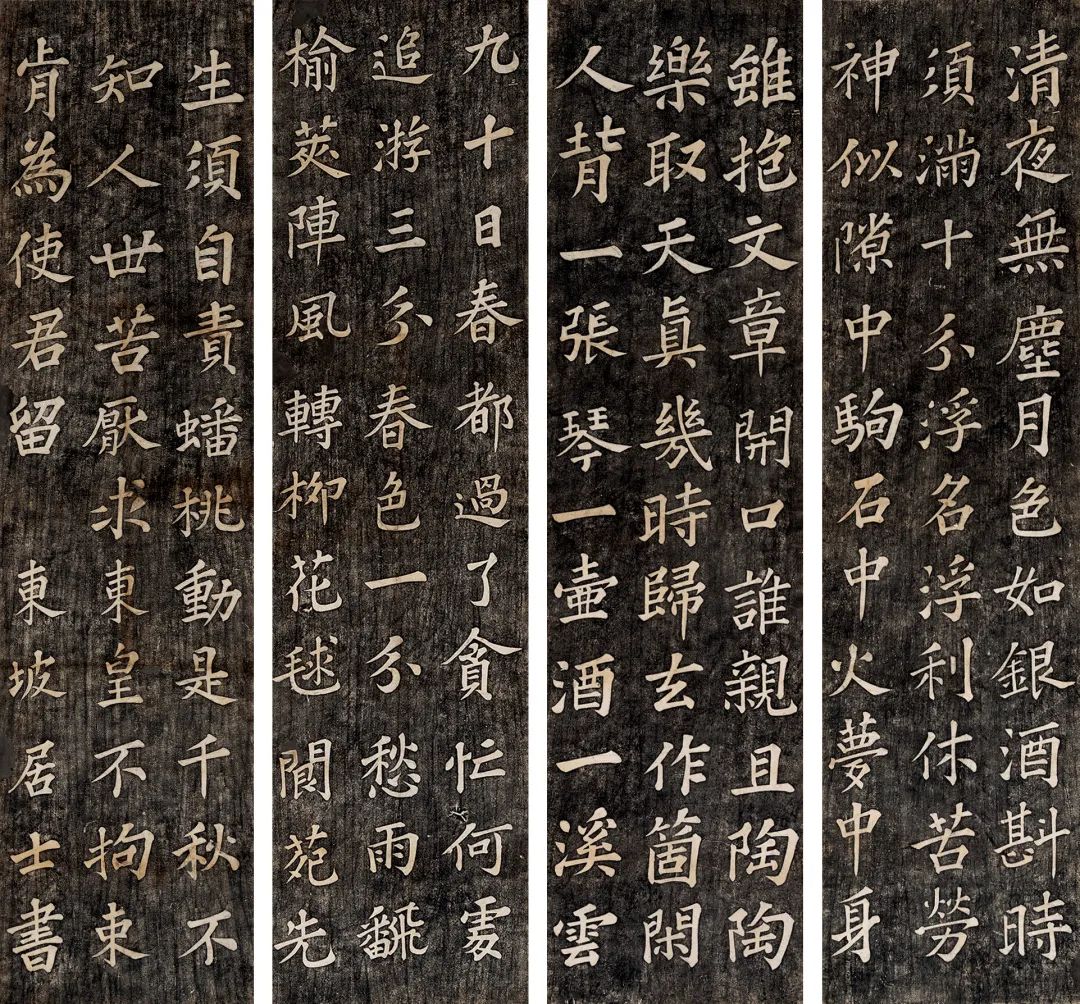 清夜無塵月色如銀酒斟時
須滿十分浮名浮利休苦勞
神似隙中駒石中火夢中身
雖抱文章開口誰親且陶陶
樂取天眞幾時歸去作箇閑
人背一張琴一壺酒一溪雲
九十日春都過了貪忙何處
追游三分春色一分愁雨飜
榆莢陣風轉柳花毬閬苑先
生須自責蟠桃動是千秋不
知人世苦厭求東皇不拘束
肯為使君留 東坡居士書